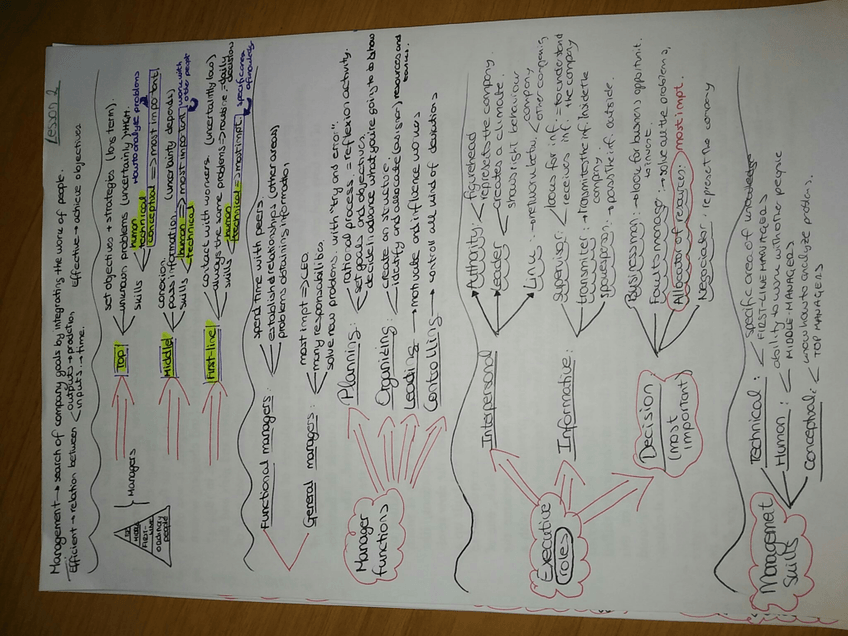 Lesson 2
Management → search of company goals by integrating the work of people.
Efficient → relation between outputs → production
inputs → time.
Effective → achieve objectives
TOP
First-line
people
Managers
Top
set objectives + strategies (long term)
uncertain problems (uncertainty) HIGH.
skills
human
technical
conceptual => most important
How to analyze problems
Middle
conexion
pass information (uncertainty depends)
skills
human => most important
technical
work with other people
First-line
contact with workers (uncertainty low)
always the same problems => routine = daily decision
skills
human
technical => most impt
specific area of knowledge
Functional managers:
spend time with peers
establish relationships (other areas)
problems obtaining information
General managers:
most impt => CEO
many responsibilities
solve new problems, with "try and error".
Manager functions
Planning:
rational process = reflexion activity.
set goals and objectives.
decide in advance what you're going to do & how
Organizing:
create an structure.
identify and allocate (division) resources and
Leading → motivate and influence workers
Controlling → controll all kind of deviations
Executive roles
Interpersonal
Authority:
figurehead
represents the company.
Leader
creates a climate
shows right behaviour
Link: → network betw
company
other companies
Informative:
Supervisor:
looks for inf. = to understand
receives inf. the company
transmiter: → transmite the inf. inside the company
→ pass the inf. outside.
Decision
(most important)
Businessman: → look for business opportunit.
Fault manager: → solve all the problems,
Allocator of resources: most impt.
Negociador: represent the company
Management skills
Technical:
specific area of knowledge
FIRST-LINE MANAGERS
Human:
ability to work with other people
MIDDLE-MANAGERS
Conceptual:
know how to analyze problem.
TOP MANAGERS